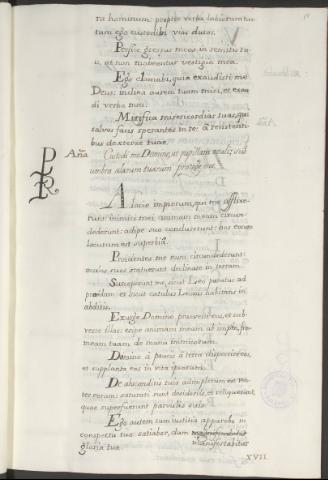 ra hominum: propter verba labiorum tuo-
rum ego custodivi vias duras.
Perfice gressus meos in semitis tu-
is, ut non moveantur vestigia mea.
Ego clamavi, quia exaudisti me
Deus: inclina aurem tuam mihi, et exau-
di verba mea.
Mirifica misericordias tuas, qui
salvos facis sperantes in te. á resistenti-
bus dexteræ tuæ.
Aña
Custodi me Domine, ut pupillam oculi; sub
umbra alarum tuarum protege me.
PR
A facie impiorum, qui me afflixe-
runt: inimici mei animam meam circun-
dederunt: adipe suo concluserunt: hos eorum
locutum est superbiã.
Proicientes me nunc circundederunt:
oculos suos statuerunt declinare in terram.
Susceperunt me, sicut Leo paratus ad
prædam: et sicut catulus Leonis habitans in
abditis.
Exurge Domine præveni eos, et sub-
verte illos: eripe animam meam ab impio, fra-
meam tuam de manu inimicorum.
Domine á paucis á terra disperire eos,
et supplanta eos in vita ipsorum.
De absconditis tuis adimpletum est ven-
ter eorum: saturati sunt desiderijs, et reliquerunt
quæ superfuerunt parvulis suis.
Ego autem cum iustitia apparebo in
conspectu tuo: satiabor, dum manifestabitur
gloria tua.
XVII.